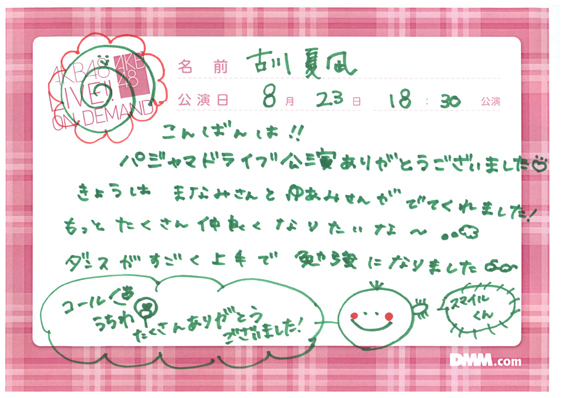 AKB48 AKB48
LIVE!!
ON DEMAND
名前 古川夏凪
公演日 8月 23日 18:30 公演
こんばんは!!
パジャマドライブ公演ありがとうございました
きょうは まなみさんと ゆあみさんが でてくれました!
もっと たくさん 仲良く なりたいな〜
ダンスがすごく上手で 勉強になりました
コール
うちわ
たくさんありがとう
ございました!
スマイル
くん
DMM.com